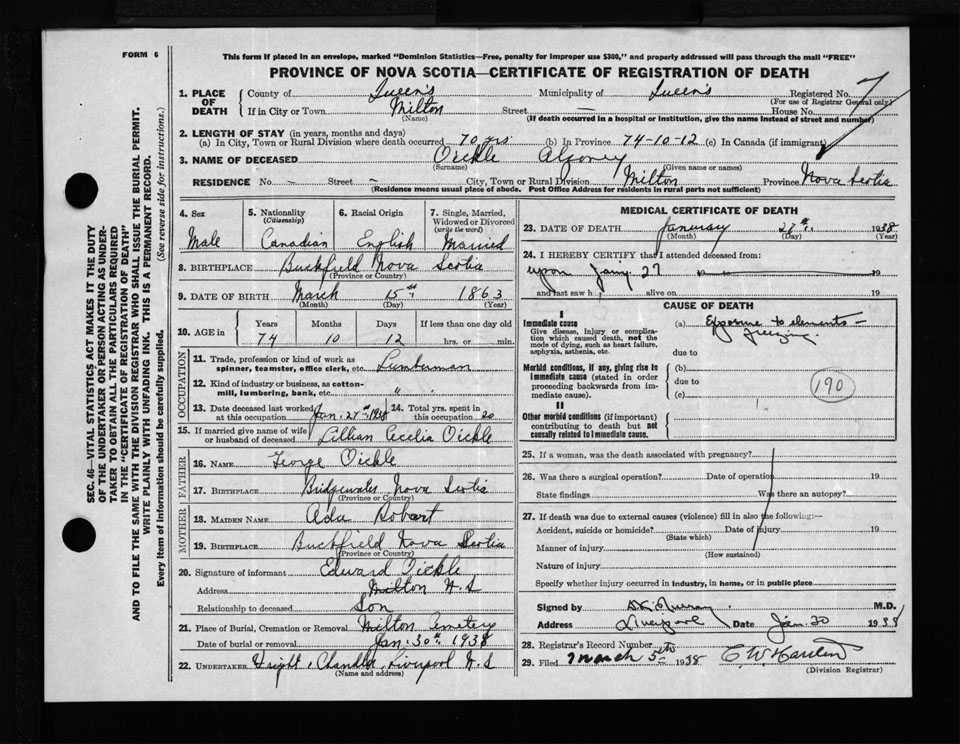 FORM 6
This form if placed in an envelope, marked "Dominion Statistics—Free, penalty for improper use $300," and properly addressed will pass through the mail "FREE"
PROVINCE OF NOVA SCOTIA—CERTIFICATE OF REGISTRATION OF DEATH
1. PLACE OF DEATH County of Queens Municipality of Queens Registered No. 7
(For use of Registrar General only)
If in City or Town Milton Street — House No.
(Name) (If death occurred in a hospital or institution, give the name instead of street and number)
2. LENGTH OF STAY (in years, months and days)
(a) In City, Town or Rural Division where death occurred 70 yrs (b) In Province 74-10-12 (c) In Canada (if immigrant)
3. NAME OF DECEASED Oickle
(Surname) (Given name or names)
RESIDENCE No. – Street – City, Town or Rural Division Milton Province Nova Scotia
(Residence means usual place of abode. Post Office Address for residents in rural parts not sufficient)
SEC. 46—VITAL STATISTICS ACT MAKES IT THE DUTY
OF THE UNDERTAKER OR PERSON ACTING AS UNDER-
TAKER TO OBTAIN ALL THE PARTICULARS REQUIRED
IN THE "CERTIFICATE OF REGISTRATION OF DEATH"
AND TO FILE THE SAME WITH THE DIVISION REGISTRAR WHO SHALL ISSUE THE BURIAL PERMIT.
WRITE PLAINLY WITH UNFADING INK. THIS IS A PERMANENT RECORD.
Every item of information should be carefully supplied. (See reverse side for instructions.)
4. Sex 5. Nationality (Citizenship) 6. Racial Origin 7. Single, Married, Widowed or Divorced (write the word)
Male Canadian English Married
8. BIRTHPLACE Buckfield Nova Scotia
(Province or Country)
9. DATE OF BIRTH March 15th 1863
(Month) (Day) (Year)
10. AGE in Years Months Days If less than one day old
74 10 12 hrs. or min.
OCCUPATION
11. Trade, profession or kind of work as spinner, teamster, office clerk, etc. Lumberman
12. Kind of industry or business, as cotton-mill, lumbering, bank, etc. "
13. Date deceased last worked at this occupation Jan. 27th 1938 14. Total yrs. spent in this occupation 20
15. If married give name of wife or husband of deceased Lillian Cecelia Oickle
FATHER
16. NAME George Oickle
17. BIRTHPLACE Bridgewater Nova Scotia
(Province or Country)
MOTHER
18. MAIDEN NAME Ada Robart
19. BIRTHPLACE Buckfield Nova Scotia
(Province or Country)
20. Signature of informant Edward Oickle
Address Milton N.S
Relationship to deceased Son
21. Place of Burial, Cremation or Removal Milton Cemetery
Date of burial or removal Jan. 30th 1938
22. UNDERTAKER Chandler Liverpool N.S
(Name and address)
MEDICAL CERTIFICATE OF DEATH
23. DATE OF DEATH January 27th 1938
(Month) (Day) (Year)
24. I HEREBY CERTIFY that I attended deceased from
upon 27 to 19
and last saw h alive on 19
CAUSE OF DEATH
I
Immediate cause (a) Exposure to elements –
Give disease, injury or complication which caused death, not the mode of dying, such as heart failure, asphyxia, asthenia, etc. freezing
due to
Morbid conditions, if any, giving rise to immediate cause (stated in order proceeding backwards from immediate cause). (b)
due to 190
(c)
II
Other morbid conditions (if important) contributing to death but not causally related to immediate cause.
25. If a woman, was the death associated with pregnancy?
26. Was there a surgical operation? Date of operation 19
State findings Was there an autopsy?
27. If death was due to external causes (violence) fill in also the following:—
Accident, suicide or homicide? Date of injury 19
(State which)
Manner of injury
(How sustained)
Nature of injury
Specify whether injury occurred in industry, in home, or in public place
Signed by Murray M.D.
Address Liverpool Date Jan. 30 1938
28. Registrar's Record Number
29. Filed March 5th 1938 C. W.
(Division Registrar)